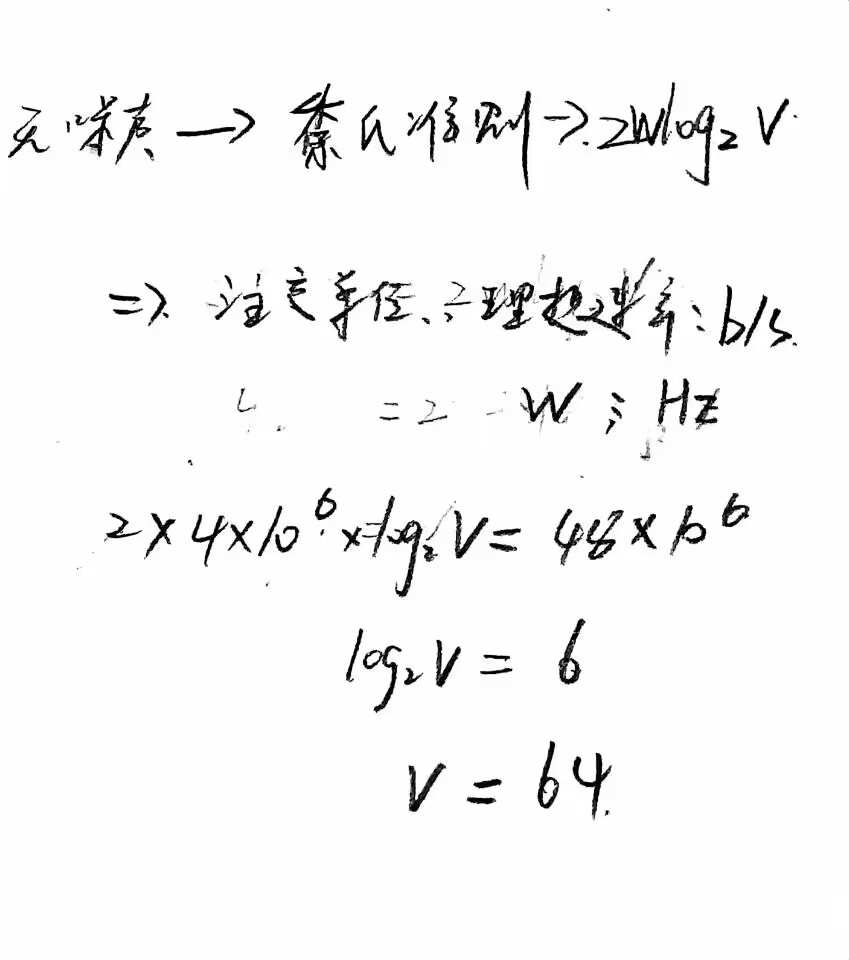 无噪声 → 奈氏准则 → 2Wlog₂V
⇒ 注意单位、理想速率：b/s
= 2 W ; Hz
2×4×10⁶×log₂V = 48×10⁶
log₂V = 6
V = 64